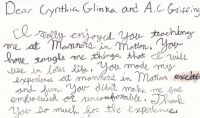 Dear Cynthia Glinka and A.C. Griffing
I really enjoyed you teaching
me at Manners in Motion. You
have tought me things that I will
use in later life. You made my
experience at manners in Motion exciting
and fun. You didn't make me feel
embarrassed or uncomfortable. Thank
You so much for the experience